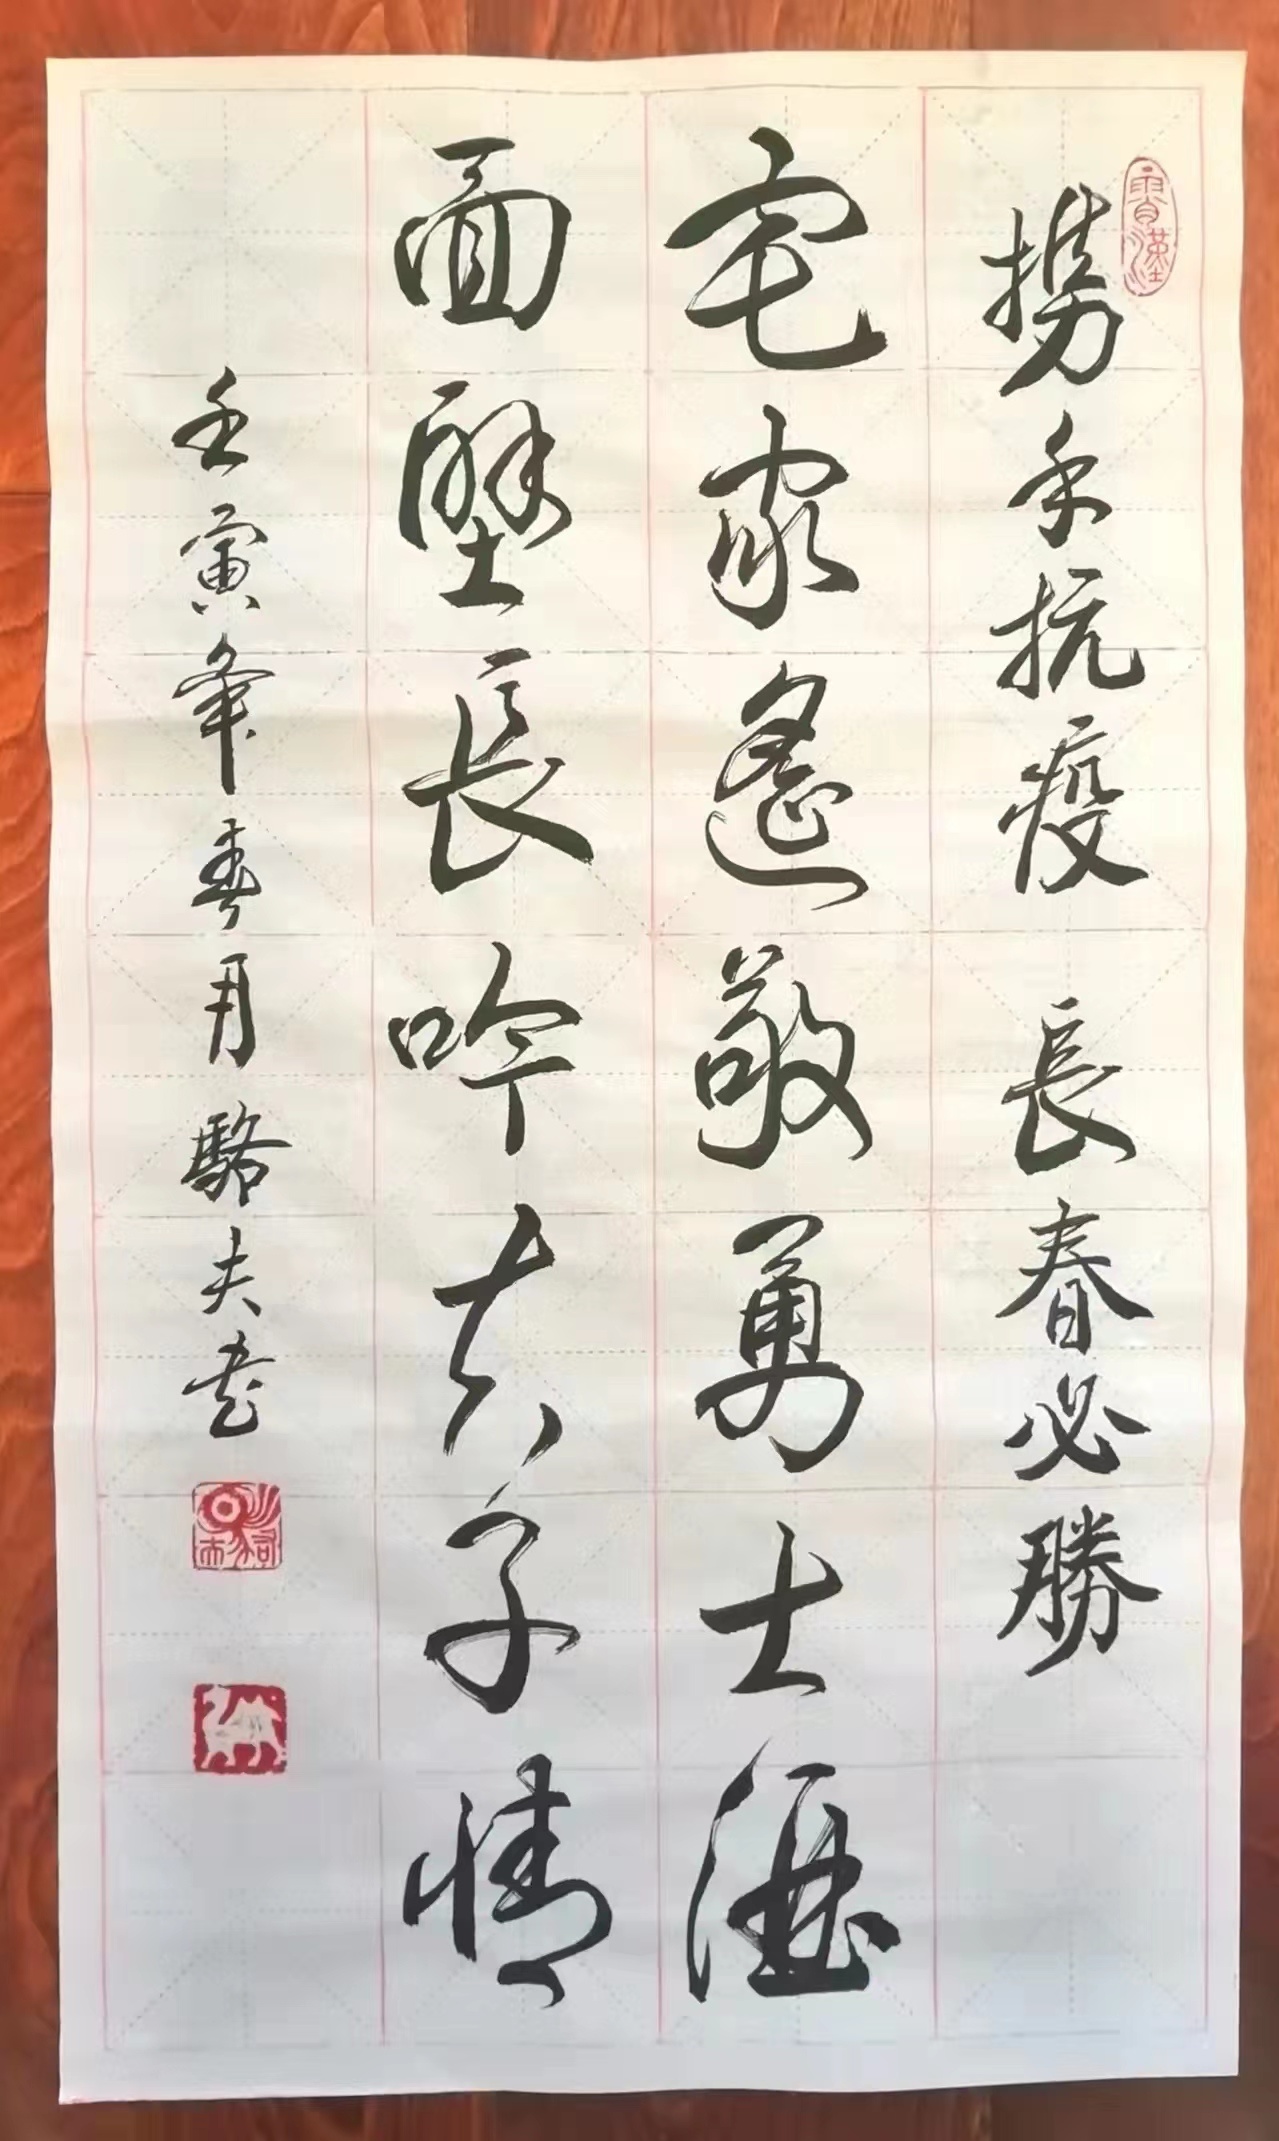 携手抗疫 長春必勝
宅家遥敬勇士酒
面壁長吟赤子情
壬寅年春月駱夫书